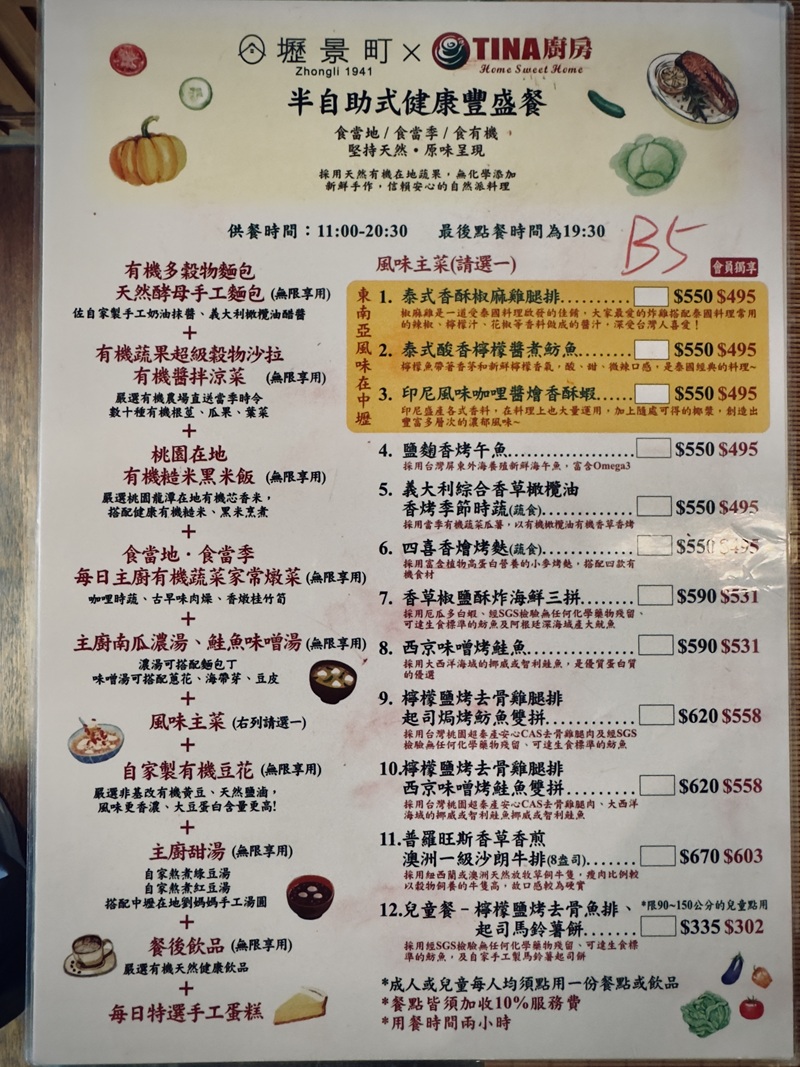 壢景町 × TINA廚房
Zhongli 1941 Home Sweet Home
半自助式健康豐盛餐
食當地/食當季/食有機
堅持天然•原味呈現
採用天然有機在地蔬果,無化學添加
新鮮手作,信賴安心的自然派料理
供餐時間:11:00-20:30 最後點餐時間為19:30
B5
有機多穀物麵包
天然酵母手工麵包(無限享用)
佐自家製手工奶油抹醬、義大利橄欖油醋醬
+
有機蔬果超級穀物沙拉
有機醬拌涼菜 (無限享用)
嚴選有機農場直送當季時令
數十種有機根莖、瓜果、葉菜
+
桃園在地
有機糙米黑米飯 (無限享用)
嚴選桃園龍潭在地有機芯香米,
搭配健康有機糙米、黑米烹煮
+
食當地·食當季
每日主廚有機蔬菜家常燉菜(無限享用)
咖哩時蔬、古早味肉燥、香燉桂竹筍
+
主廚南瓜濃湯、鮭魚味噌湯(無限享用)
濃湯可搭配麵包丁
味噌湯可搭配蔥花、海帶芽、豆皮
+
風味主菜 (右列請選一)
+
自家製有機豆花 (無限享用)
嚴選非基改有機黃豆、天然鹽滷,
風味更香濃、大豆蛋白含量更高!
+
主廚甜湯 (無限享用)
自家熬煮綠豆湯
自家熬煮紅豆湯
搭配中壢在地劉媽媽手工湯圓
+
餐後飲品 (無限享用)
嚴選有機天然健康飲品
+
每日特選手工蛋糕
風味主菜(請選一)
會員獨享
東南亞風味在中壢
1. 泰式香酥椒麻雞腿排.......... $550 $495
椒麻雞是一道受泰國料理啟發的佳餚,大家最愛的炸雞搭配泰國料理常用
的辣椒、檸檬汁、花椒等香料做成的醬汁,深受台灣人喜愛!
2. 泰式酸香檸檬醬煮魴魚....... $550 $495
檸檬魚帶著香茅和新鮮檸檬香氣,酸、甜、微辣口感,是泰國經典的料理~
3. 印尼風味咖哩醬燴香酥蝦..... $550 $495
印尼盛產各式香料,在料理上也大量運用,加上隨處可得的椰漿,創造出
豐富多層次的濃郁風味~
4. 鹽麴香烤午魚.................. $550 $495
採用台灣屏東外海養殖新鮮海午魚,富含Omega3
5. 義大利綜合香草橄欖油
香烤季節時蔬(蔬食)............. $550 $495
採用當季有機蔬菜瓜薯,以有機橄欖油有機香草香烤
6. 四喜香燴烤麩(蔬食)............. $550 $495
採用富含植物高蛋白營養的小麥烤麩,搭配四款有
機食材
7. 香草椒鹽酥炸海鮮三拼....... $590 $531
採用厄瓜多白蝦、經SGS檢驗無任何化學藥物殘留、
可達生食標準的魴魚及阿根廷深海域產大魷魚
8. 西京味噌烤鮭魚................ $590 $531
採用大西洋海域的挪威或智利鮭魚,是優質蛋白質
的優選
9. 檸檬鹽烤去骨雞腿排
起司焗烤魴魚雙拼............. $620 $558
採用台灣桃園超秦產安心CAS去骨雞腿肉及經SGS
檢驗無任何化學藥物殘留、可達生食標準的魴魚
10.檸檬鹽烤去骨雞腿排
西京味噌烤鮭魚雙拼.......... $620 $558
採用台灣桃園超秦產安心CAS去骨雞腿肉、大西洋
海域的挪威或智利鮭魚挪威或智利鮭魚
11.普羅旺斯香草香煎
澳洲一級沙朗牛排(8盎司)....... $670 $603
採用紐西蘭或澳洲天然放牧草飼牛隻,瘦肉比例較
以穀物飼養的牛隻高,故口感較為硬實
12.兒童餐–檸檬鹽烤去骨魚排、 *限90~150公分的兒童點用
起司馬鈴薯餅....... $335 $302
採用經SGS檢驗無任何化學藥物殘留、可達生食標
準的魴魚,及自家手工製馬鈴薯起司餅
*成人或兒童每人均須點用一份餐點或飲品
*餐點皆須加收10%服務費
*用餐時間兩小時